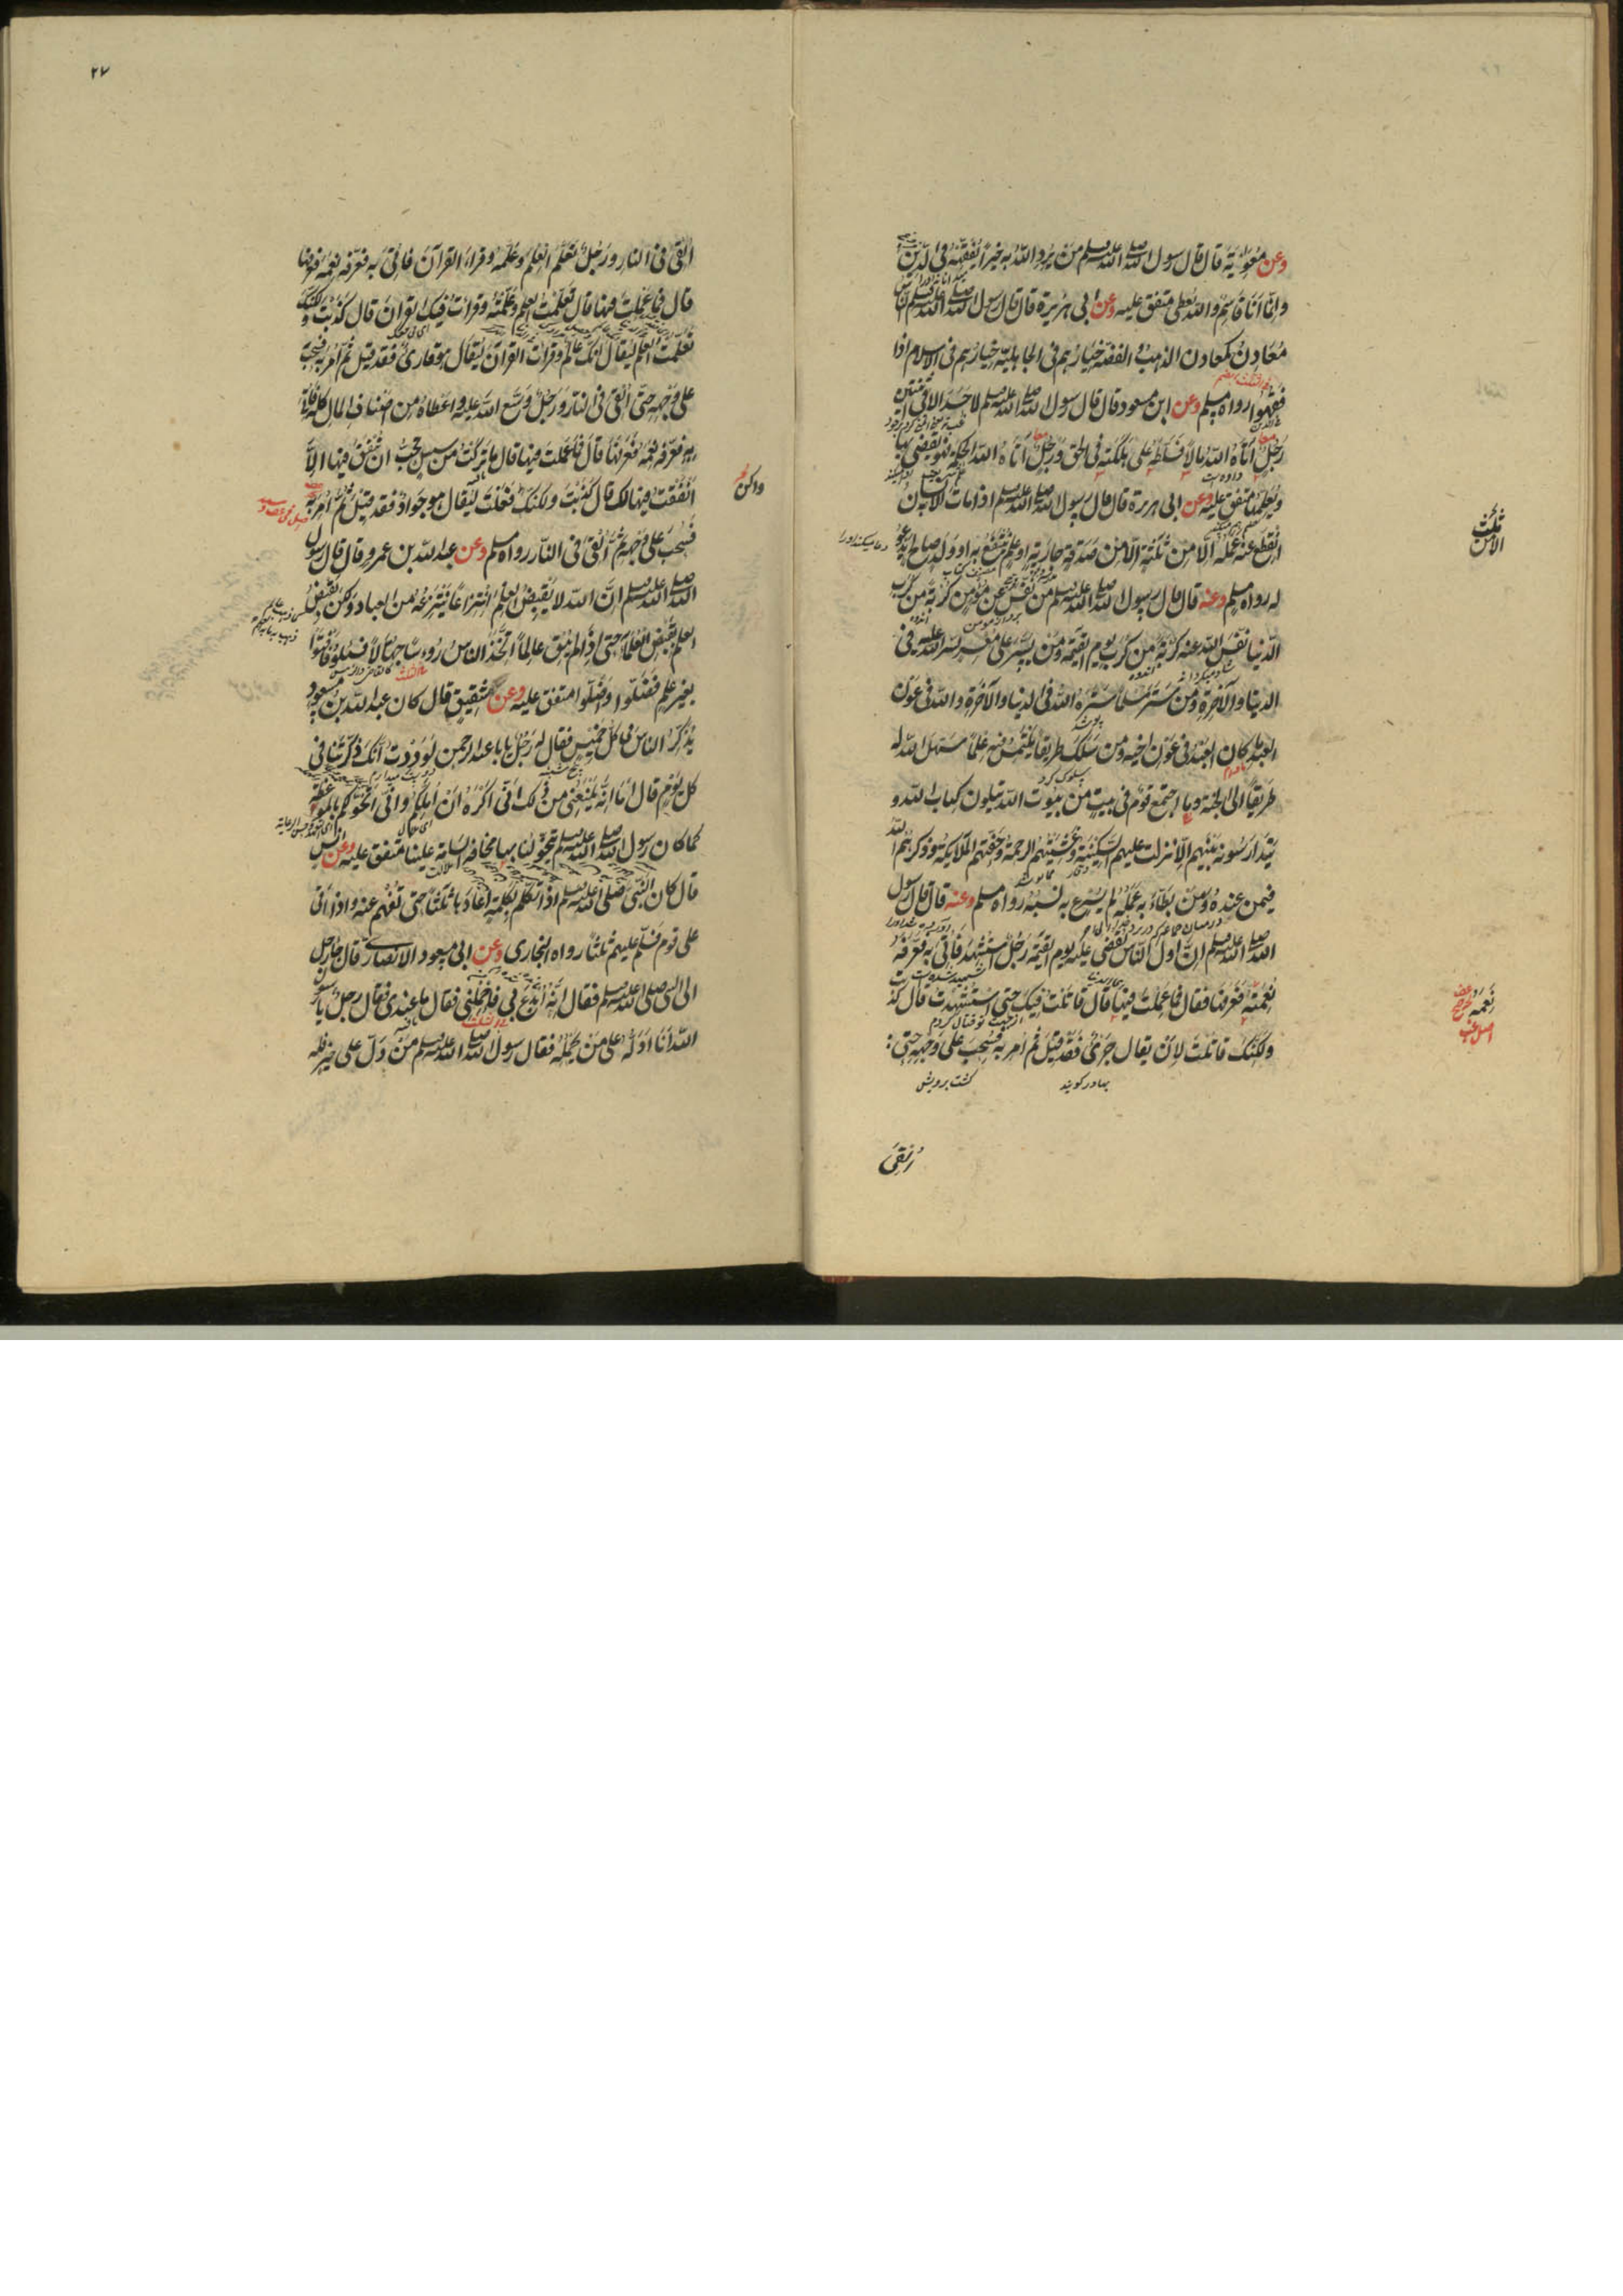 وعن معوية قال قال رسول الله صلى الله عليه وسلم من يرد الله به خيرا يفقهه فى الدين
وانما انا قاسم والله يعطى متفق عليه وعن ابى هريرة قال قال رسول الله صلى الله عليه وسلم الناس
معادن كمعادن الذهب والفضة خيارهم فى الجاهلية خيارهم فى الاسلام اذا
فقهوا رواه مسلم وعن ابن مسعود قال قال رسول الله صلى الله عليه وسلم لا حسد الا فى اثنتين
رجل اتاه الله مالا فسلطه على هلكته فى الحق ورجل اتاه الله الحكمة فهو يقضى بها
ويعلمها متفق عليه وعن ابى هريرة قال قال رسول الله صلى الله عليه وسلم اذا مات الانسان
انقطع عنه عمله الا من ثلثة الا من صدقة جارية او علم ينتفع به او ولد صالح يدعو
له رواه مسلم وعنه قال قال رسول الله صلى الله عليه وسلم من نفس عن مؤمن كربة من كرب
الدنيا نفس الله عنه كربة من كرب يوم القيمة ومن يسر على معسر يسر الله عليه فى
الدنيا والآخرة ومن ستر مسلما ستره الله فى الدنيا والآخرة والله فى عون
العبد ما كان العبد فى عون اخيه ومن سلك طريقا يلتمس فيه علما سهل الله له
طريقا الى الجنة وما اجتمع قوم فى بيت من بيوت الله يتلون كتاب الله و
يتدارسونه بينهم الا نزلت عليهم السكينة وغشيتهم الرحمة وحفتهم الملايكة وذكرهم الله
فيمن عنده ومن بطأ به عمله لم يسرع به نسبه رواه مسلم وعنه قال قال رسول
الله صلى الله عليه وسلم ان اول الناس يقضى عليه يوم القيمة رجل استشهد فاتى به فعرفه
نعمته فعرفها فقال فما عملت فيها قال قاتلت فيك حتى استشهدت قال كذبت
ولكنك قاتلت لان يقال جرئ فقد قيل ثم امر به فسحب على وجهه حتى
بهادر كويند
القى
٢٧
القى فى النار ورجل تعلم العلم وعلمه وقراء القرآن فاتى به فعرفه نعمه فعرفها
قال فما عملت فيها قال تعلمت العلم وعلمته وقرات فيك القران قال كذبت ولكنك
تعلمت العلم ليقال انك عالم وقرات القرآن ليقال هو قارئ فقد قيل ثم امر به فسحب
على وجهه حتى القى فى النار ورجل وسع الله عليه واعطاه من اصناف المال كله فاتى
به فعرفه نعمه فعرفها قال فما عملت فيها قال ما تركت من سبيل تحب ان ينفق فيها الا
انفقت فيها لك قال كذبت ولكنك فعلت ليقال هو جواد فقد قيل ثم امر به
فسحب على وجهه ثم القى فى النار رواه مسلم وعن عبد الله بن عمرو قال قال رسول
الله صلى الله عليه وسلم ان الله لا يقبض العلم انتزاعا ينتزعه من العباد ولكن يقبض
العلم بقبض العلماء حتى اذا لم يبق عالما اتخذ الناس رءوسا جهالا فسئلوا فافتوا
بغير علم فضلوا واضلوا متفق عليه وعن شقيق قال كان عبد الله بن مسعود
يذكر الناس فى كل خميس فقال له رجل يا با عبد الرحمن لوددت انك ذكرتنا فى
كل يوم قال اما انه يمنعنى من ذلك انى اكره ان املكم وانى اتخولكم بالموعظة
كما كان رسول الله صلى الله عليه وسلم يتخولنا بها مخافة السامة علينا متفق عليه وعن انس
قال كان النبى صلى الله عليه وسلم اذا تكلم بكلمة اعادها ثلثا حتى تفهم عنه واذا اتى
على قوم فسلم عليهم ثلثا رواه البخارى وعن ابى مسعود الانصارى قال جاء رجل
الى النبى صلى الله عليه وسلم فقال انه ابدع بى فاحملنى فقال ما عندى فقال رجل يا رسول
الله انا ادله على من يحمله فقال رسول الله صلى الله عليه وسلم من دل على خير فله